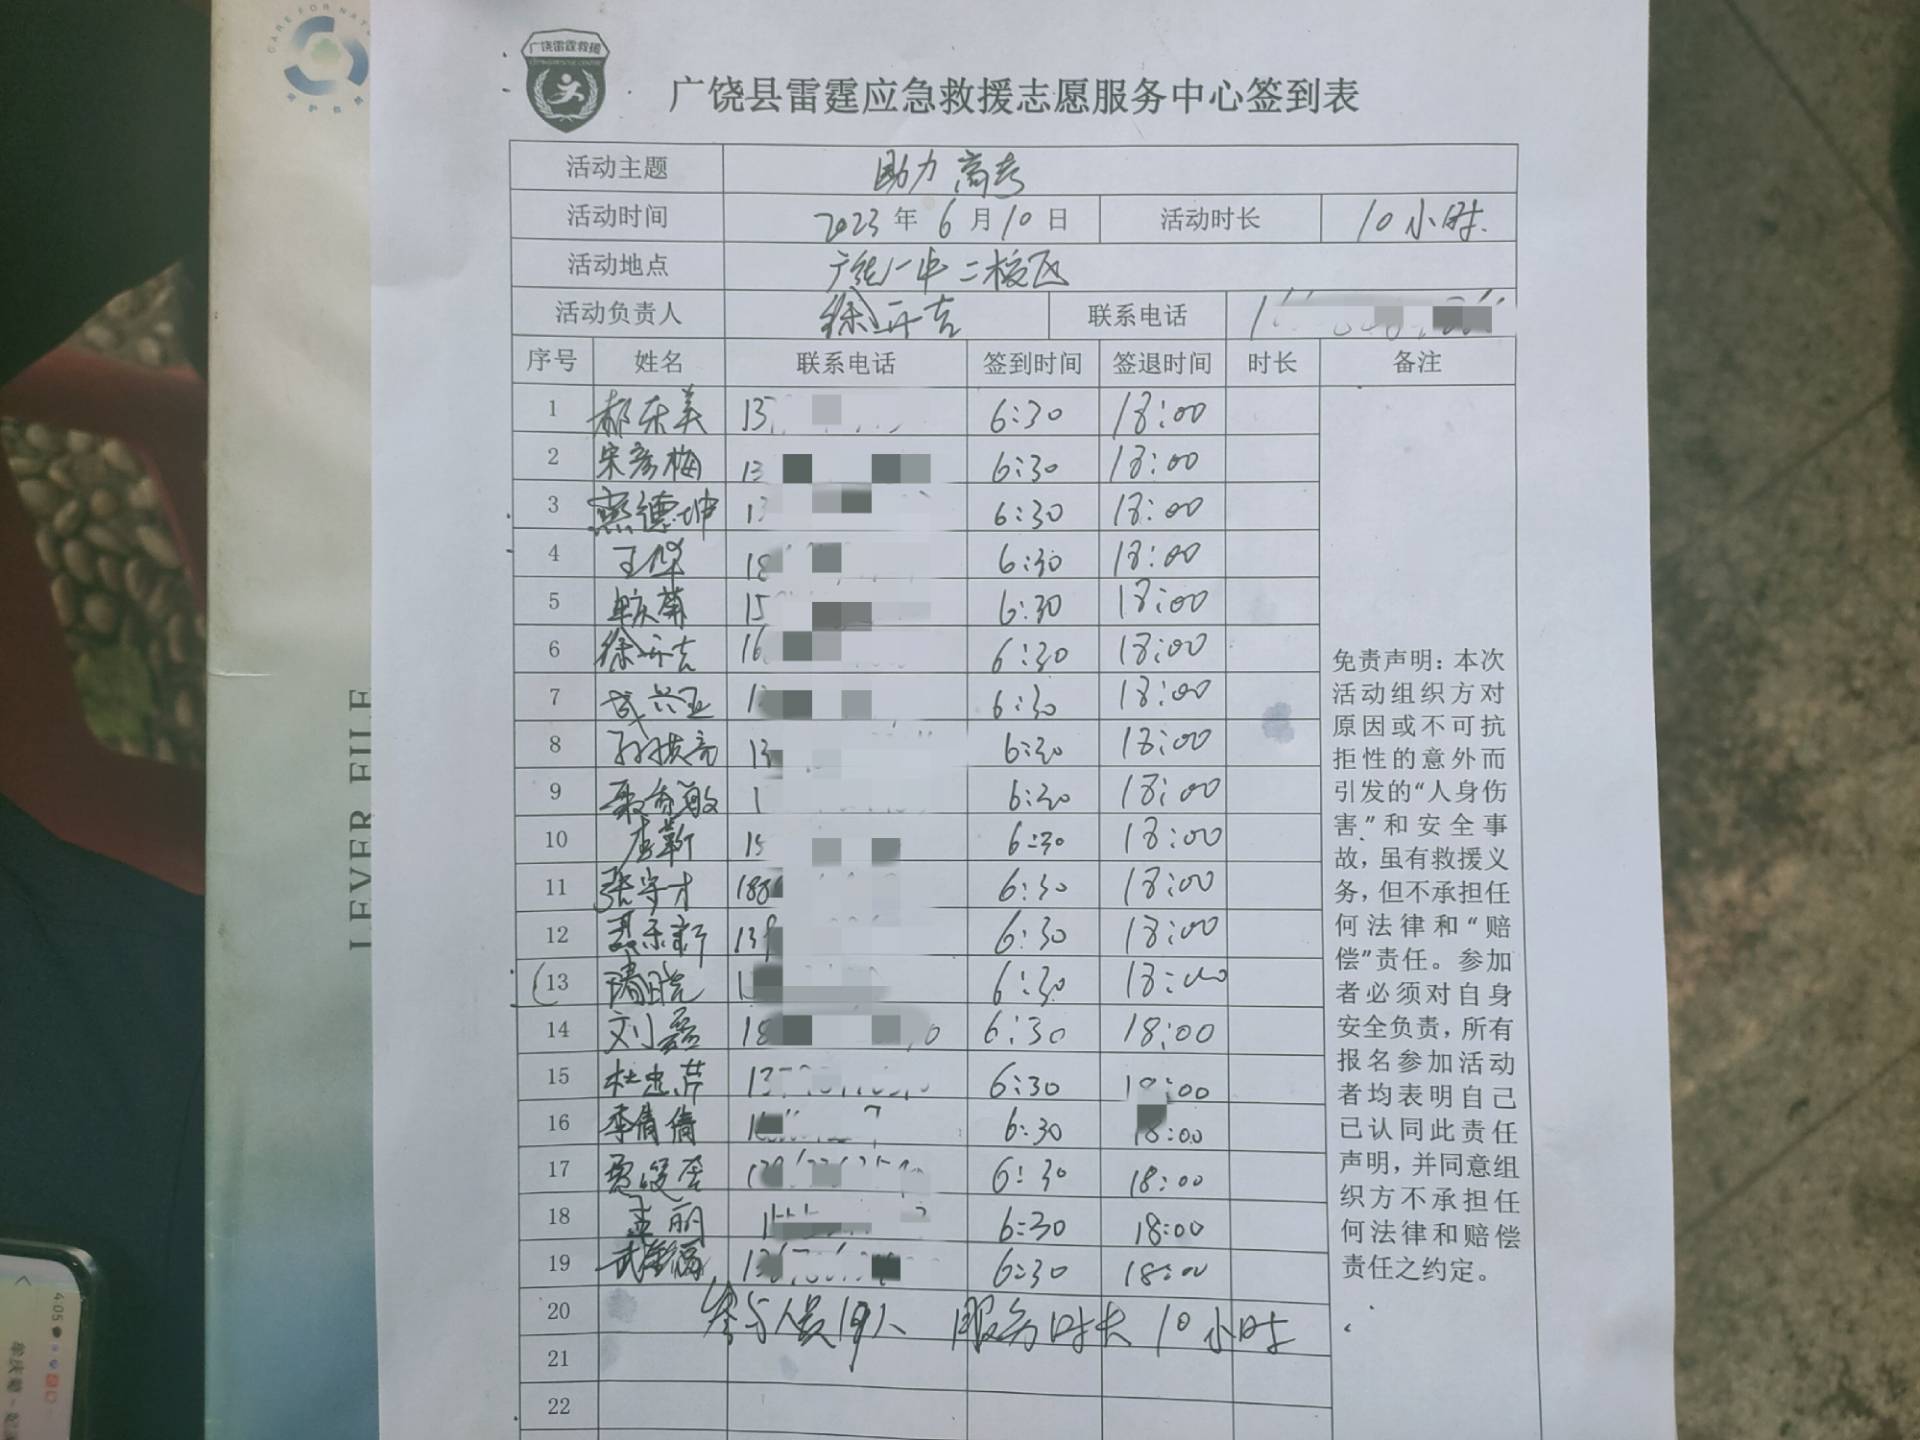 CARE FOR NATU
广饶雷霆救援
广饶县雷霆应急救援志愿服务中心签到表
活动主题 助力高考
活动时间 2023年6月10日 活动时长 10小时.
活动地点 广饶一中二校区
活动负责人 联系电话 1
序号 姓名 联系电话 签到时间 签退时间 时长 备注
1 郝乐美 13 6:30 18:00
2 宋彦梅 13 6:30 18:00
3 燕德坤 13 6:30 18:00
4 王华 18 6:30 18:00
5 15 6:30 18:00
6 16 6:30 18:00
7 成兴亚 1 6:30 18:00
8 13 6:30 18:00
9 聂金敏 1 6:30 18:00
10 15 6:30 18:00
11 张守才 188 6:30 18:00
12 139 6:30 18:00
13 1 6:30 18:00
14 刘磊 18 6:30 18:00
15 杜忠芹 13 6:30 18:00
16 李倩倩 1 6:30 18:00
17 13 6:30 18:00
18 孟丽 1 6:30 18:00
19 13 6:30 18:00
20 参与人员19人 服务时长10小时
21
22
免责声明：本次
活动组织方对
原因或不可抗
拒性的意外而
引发的“人身伤
害”和安全事
故，虽有救援义
务，但不承担任
何法律和“赔
偿”责任。参加
者必须对自身
安全负责，所有
报名参加活动
者均表明自己
已认同此责任
声明，并同意组
织方不承担任
何法律和赔偿
责任之约定。
LEVER FILE
4:05